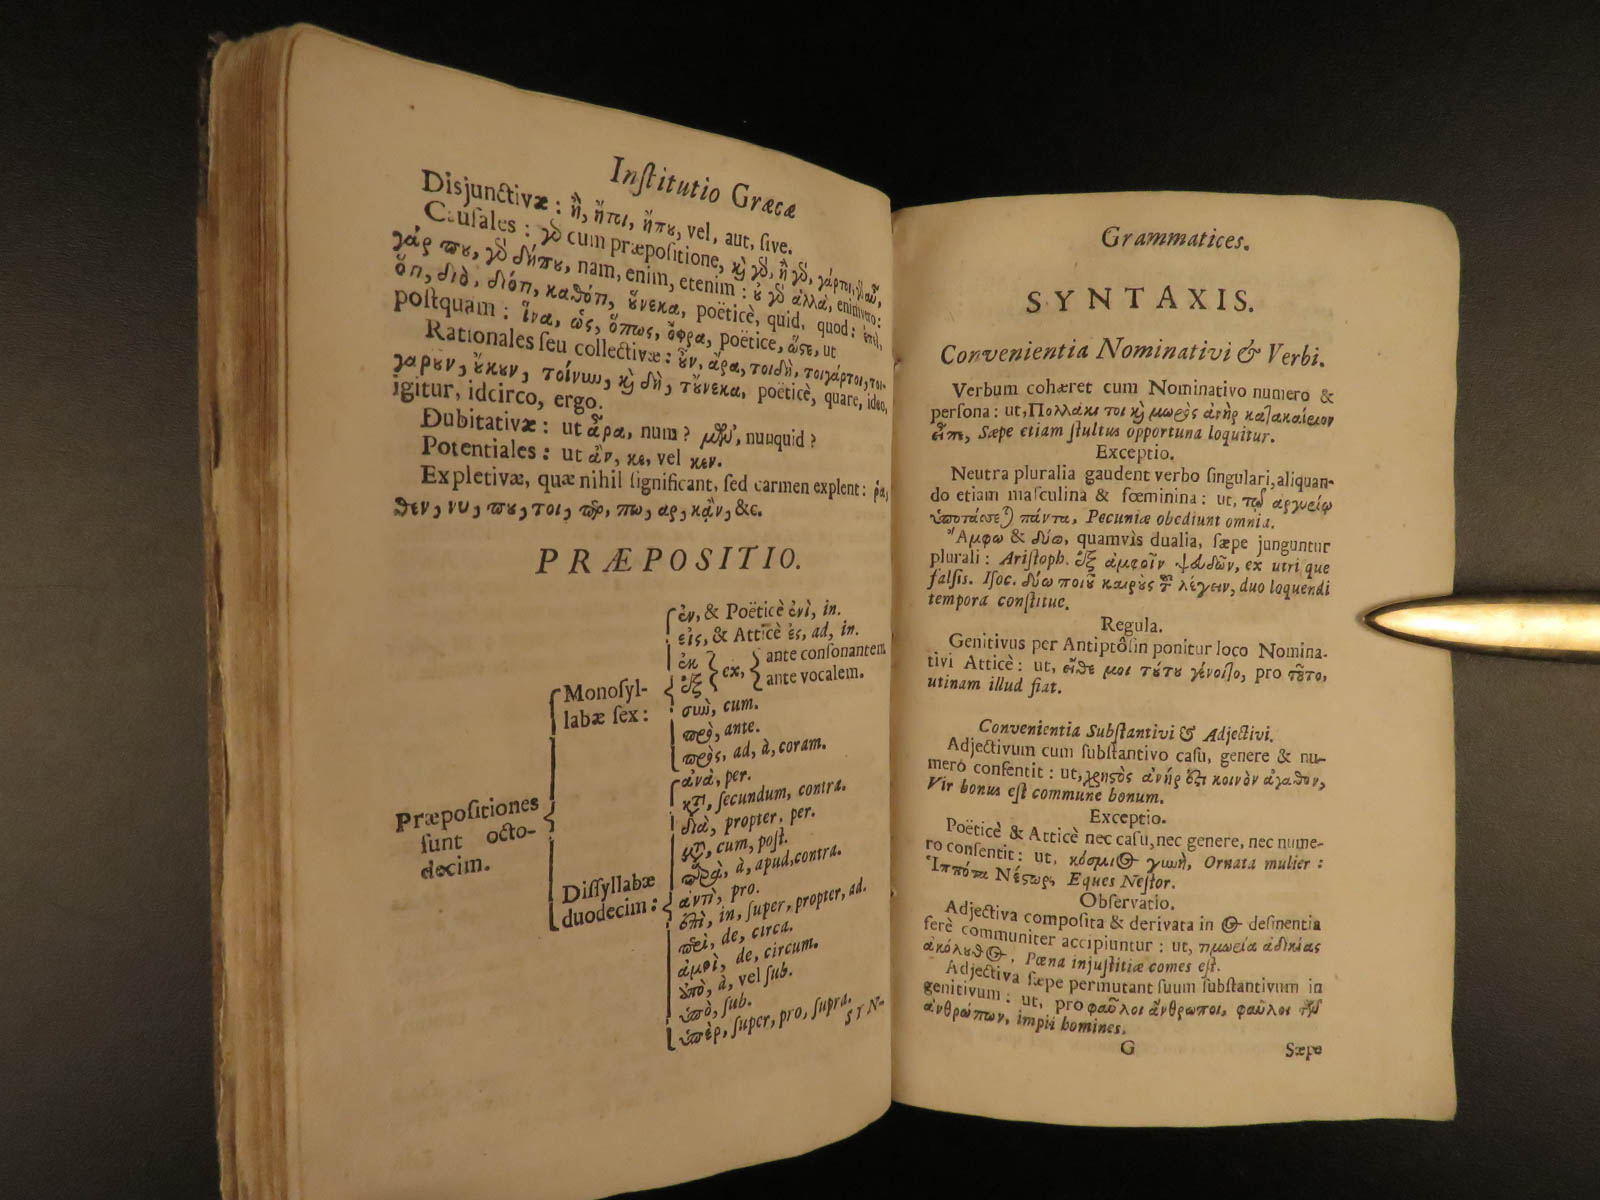 Institutio Græcæ
Disjunctivæ : ἢ, ἤτοι, ἤπου, vel, aut, ſive.
Cauſales : γὰρ cum præpoſitione, καὶ γὰρ, ἢ γὰρ, γάρτοι,
γάρ που, γὰρ δήπου, nam, enim, etenim : οὐ γὰρ ἀλλὰ, enimvero:
ὅτι, διὸ, διότι, καθότι, οὕνεκα, poëticè, quid, quod : ἐπεὶ,
poſtquam : ἵνα, ὡς, ὅπως, ὄφρα, poëtice, ὥστε, ut
Rationales ſeu collectivæ : οὖν, ἄρα, τοιδὴ, τοιγάρτοι, τοι-
γαροῦν, οὔκουν, τοίνυν, καὶ δὴ, τούνεκα, poëticè, quare, ideo,
igitur, idcirco, ergo.
Dubitativæ : ut ἆρα, num ? μῶν, nunquid ?
Potentiales : ut ἀν, κε, vel κεν.
Expletivæ, quæ nihil ſignificant, ſed carmen explent : ῥα,
θεν, νυ, που, τοι, περ, πω, αρ, κᾂν, &c.
PRÆPOSITIO.
Præpoſitiones
ſunt octo-
decim.
Monoſyl-
labæ ſex :
ἐν, & Poëticè ἐνὶ, in.
εἰς, & Atticè ἐς, ad, in.
ἐκ ex, ante conſonantem
ἐξ ante vocalem.
σὺν, cum.
πρὸ, ante.
πρὸς, ad, à, coram.
Diſſyllabæ
duodecim :
ἀνὰ, per.
κατὰ, ſecundum, contra.
διὰ, propter, per.
μετὰ, cum, poſt.
παρὰ, à, apud, contra.
ἀντὶ, pro.
ἐπὶ, in, ſuper, propter, ad.
περὶ, de, circa.
ἀμφὶ, de, circum.
ἀπὸ, à, vel ſub.
ὑπὸ, ſub.
ὑπὲρ, ſuper, pro, ſupra.
SYN-
Grammatices.
SYNTAXIS.
Convenientia Nominativi & Verbi.
Verbum cohæret cum Nominativo numero &
perſona : ut, Πολλάκι τοι καὶ μωρὸς ἀνὴρ κατακαίριον
εἶπε, Sæpe etiam ſtultus opportuna loquitur.
Exceptio.
Neutra pluralia gaudent verbo ſingulari, aliquan-
do etiam maſculina & fœminina : ut, τῷ ἀργυρίῳ
ὑποτάσσεται πάντα, Pecuniæ obediunt omnia.
Ἄμφω & δύω, quamvis dualia, ſæpe junguntur
plurali : Ariſtoph. ἐξ ἀμφοῖν ψευδῶν, ex utri que
falſis. Iſoc. δύω ποιοῦ καιροὺς τοῦ λέγειν, duo loquendi
tempora conſtitue.
Regula.
Genitivus per Antiptôſin ponitur loco Nomina-
tivi Atticè : ut, εἴθε μοι τούτου γένοιτο, pro τοῦτο,
utinam illud fiat.
Convenientia Subſtantivi & Adjectivi.
Adjectivum cum ſubſtantivo caſu, genere & nu-
mero conſentit : ut, χρηστὸς ἀνήρ ἐστι κοινὸν ἀγαθον,
Vir bonus eſt commune bonum.
Exceptio.
Poëticè & Atticè nec caſu, nec genere, nec nume-
ro conſentit : ut, κόσμιος γυνὴ, Ornata mulier :
Ἱππότα Νέστωρ, Eques Neſtor.
Obſervatio.
Adjectiva compoſita & derivata in ος deſinentia
ferè communiter accipiuntur : ut, τιμωρία ἀδικίας
ἀκόλουθος, Pœna injuſtitiæ comes eſt.
Adjectiva ſæpe permutant ſuum ſubſtantivum in
genitivum : ut, pro φαῦλοι ἄνθρωποι, φαῦλοι τῶν
ἀνθρώπων, impii homines.
G Sæpe